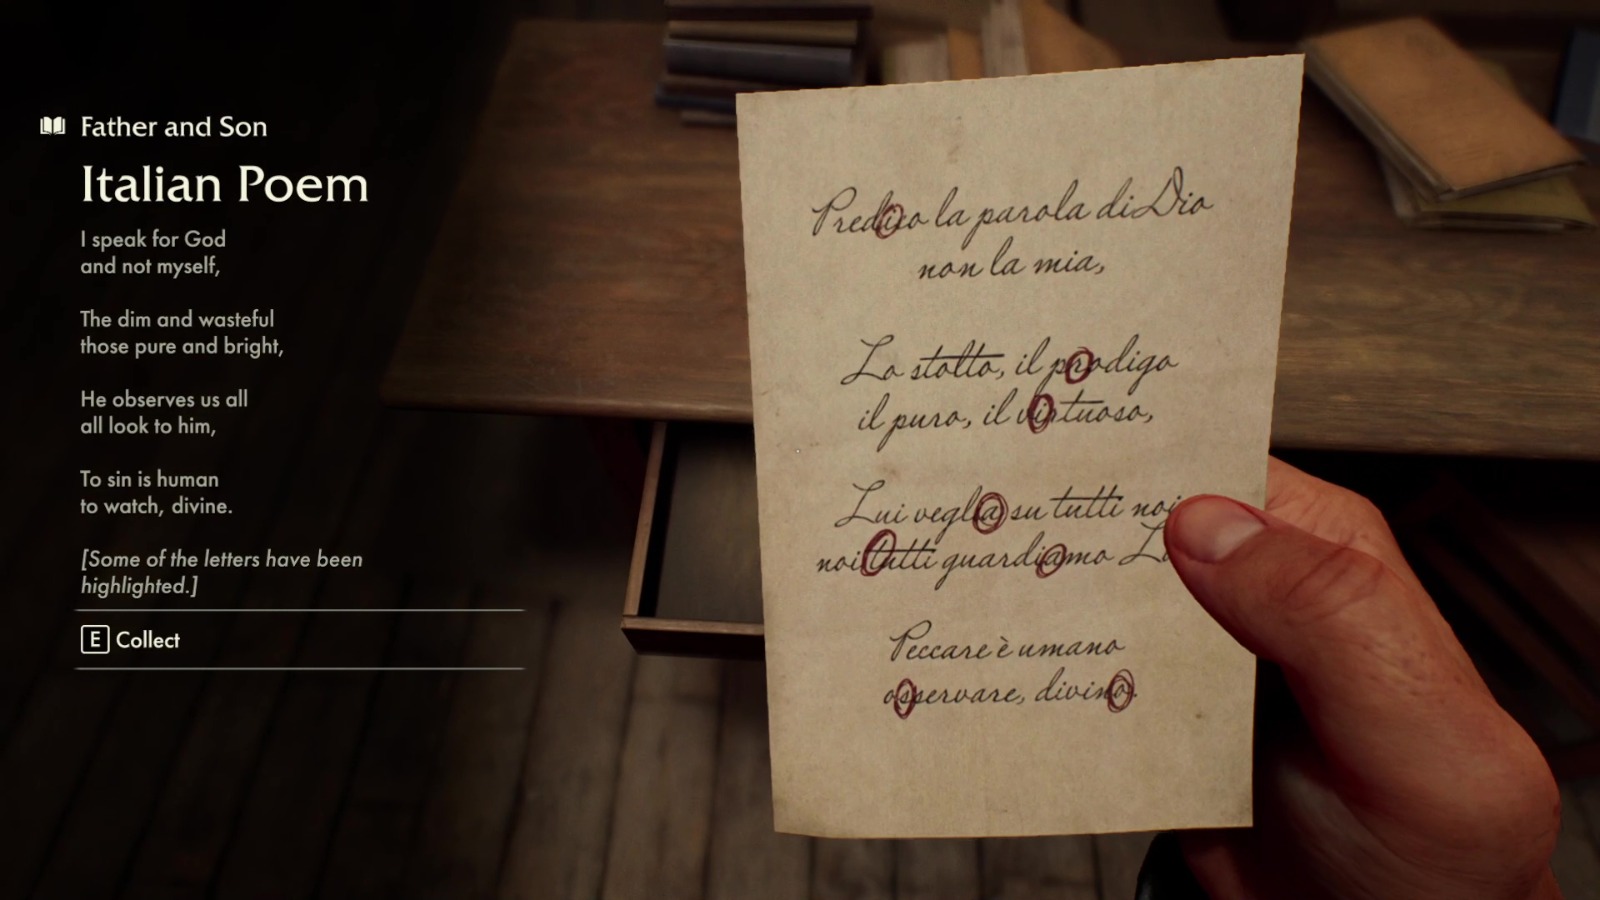 Father and Son
Italian Poem
I speak for God
and not myself,
The dim and wasteful
those pure and bright,
He observes us all
all look to him,
To sin is human
to watch, divine.
[Some of the letters have been
highlighted.]
E Collect
Predico la parola di Dio
non la mia,
Lo stolto, il prodigo
il puro, il virtuoso,
Lui veglia su tutti noi
noi tutti guardiamo
Peccare è umano
osservare, divino.